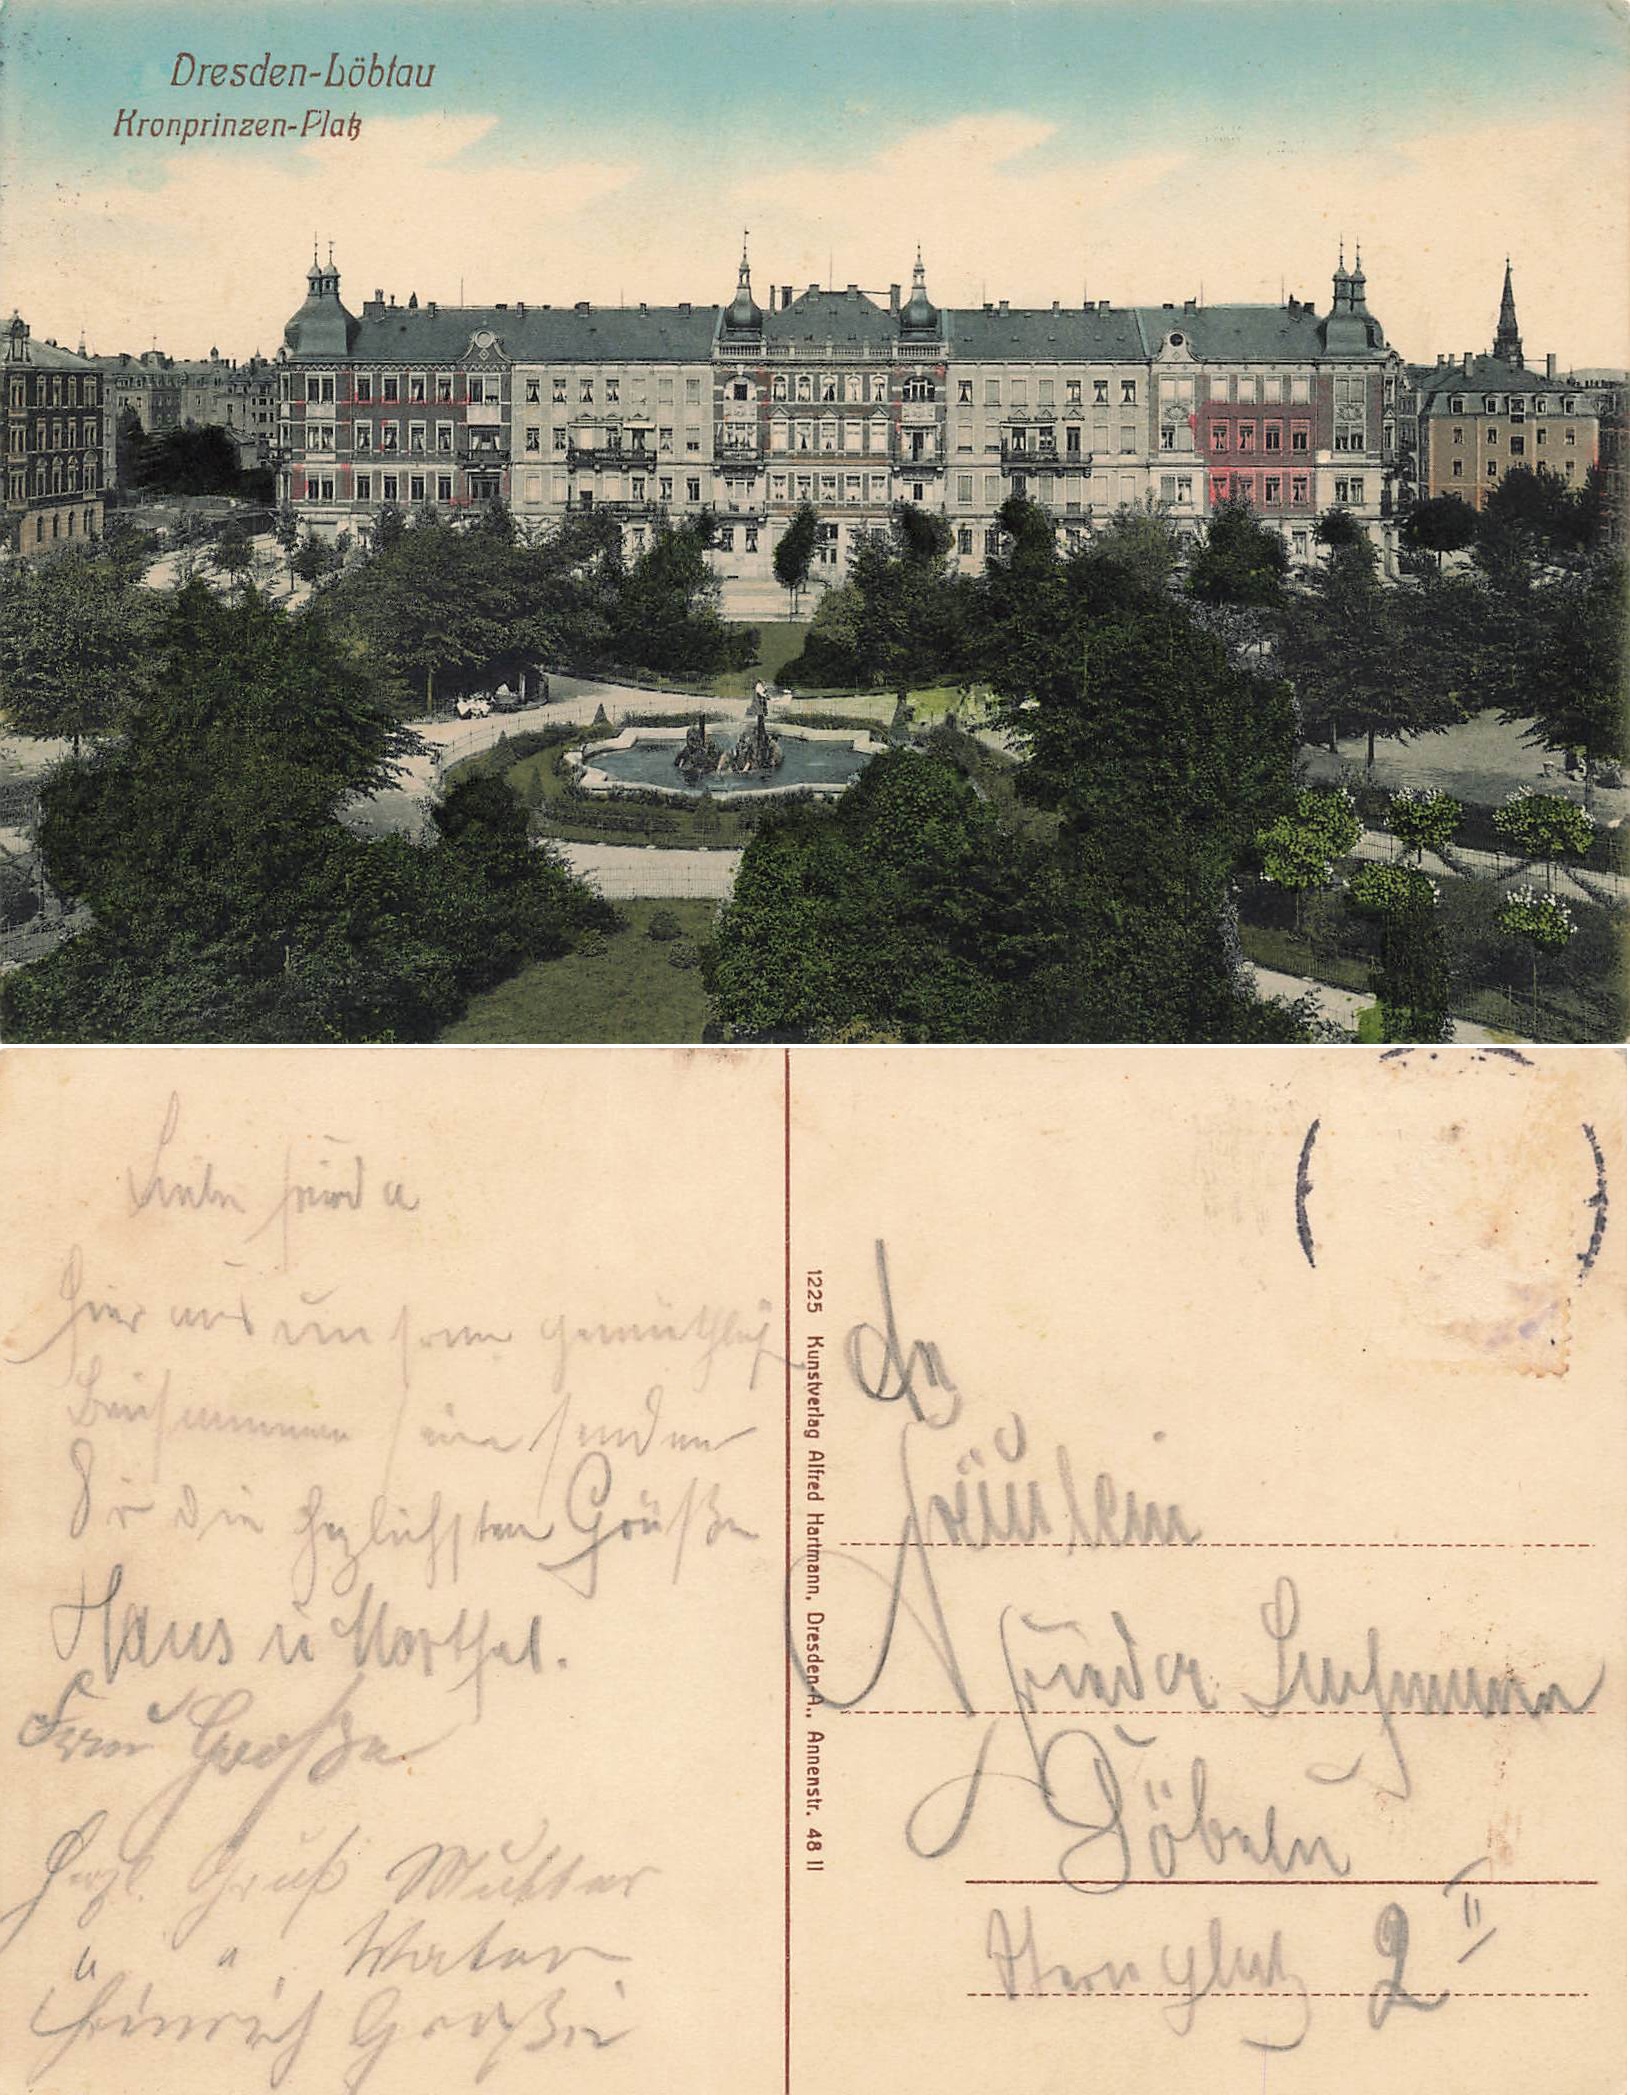 Dresden-Löbtau
Kronprinzen-Platz
Liebe Frieda
Hier aus unserm gemüthlich
Beisammen sein senden
Dir die herzlichsten Grüße
Hans u Marthel.
Frau Große
Herzl. Gruß Mutter
" " Vater
Heinrich Große
1225 Kunstverlag Alfred Hartmann, Dresden-A., Annenstr. 48 II
An
Fräulein
Frieda
Döbeln
2 II